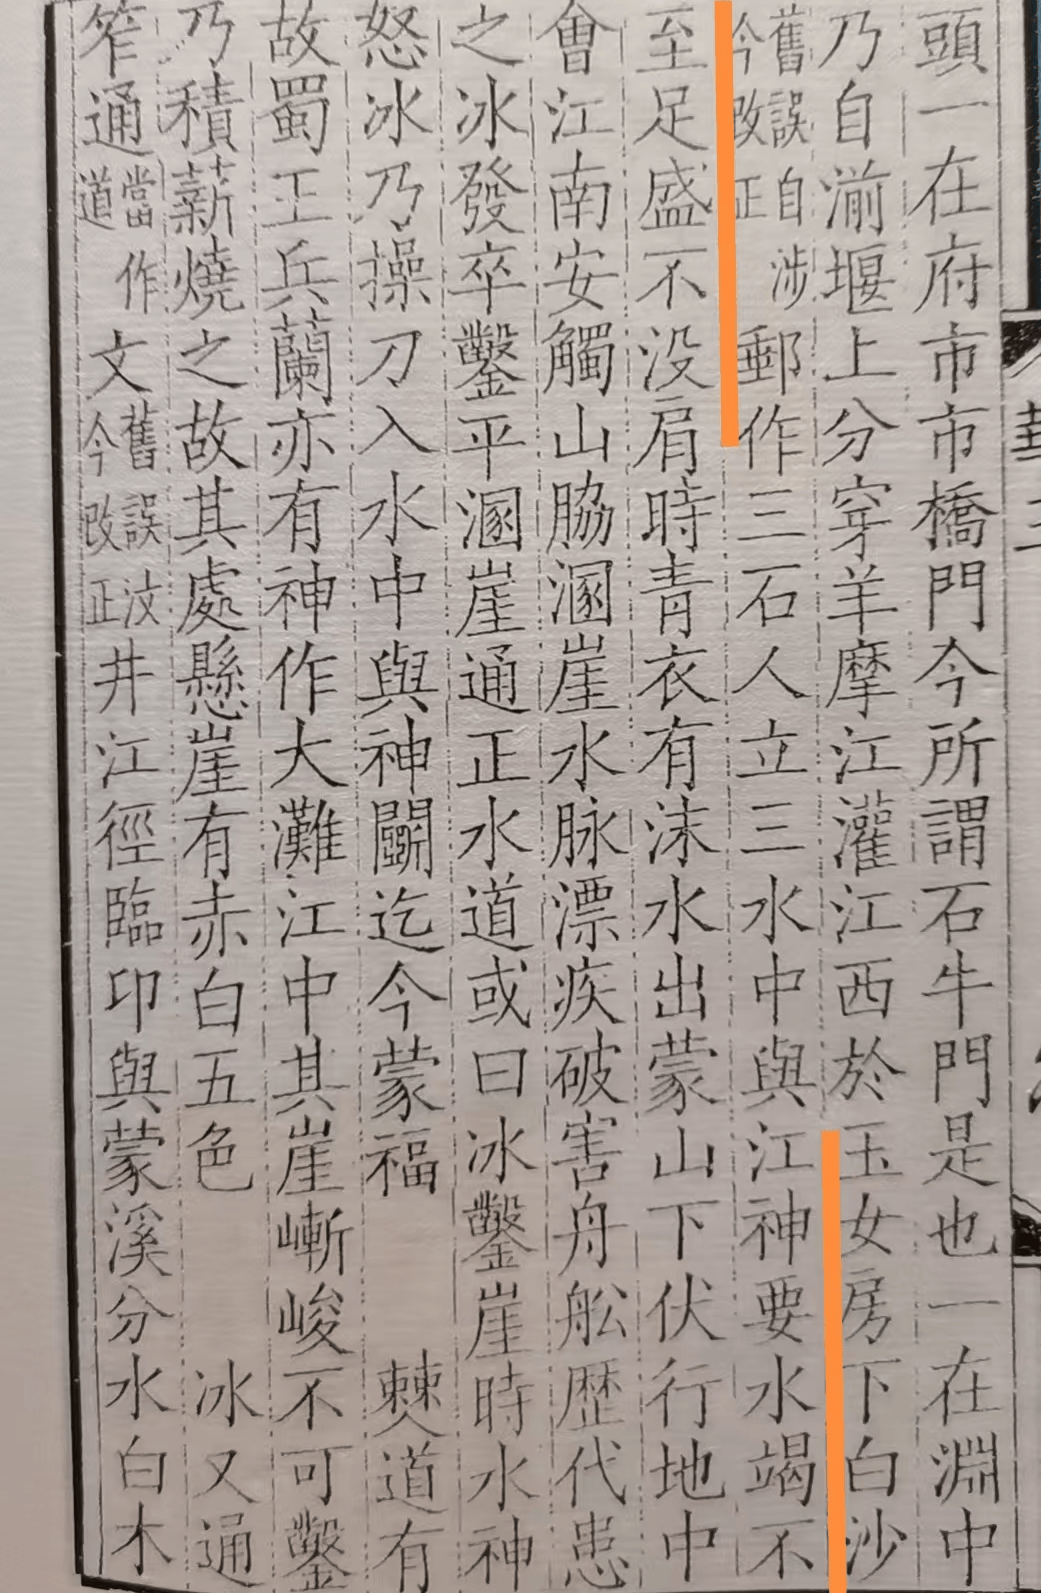 頭一在府市市橋門今所謂石牛門是也一在淵中
乃自湔堰上分穿羊摩江灌江西於玉女房下白沙
舊誤自涉今改正郵作三石人立三水中與江神要水竭不
至足盛不没肩時青衣有沫水出蒙山下伏行地中
會江南安觸山脇溷崖水脉漂疾破害舟舩歷代患
之冰發卒鑿平溷崖通正水道或曰冰鑿崖時水神
怒冰乃操刀入水中與神鬬迄今蒙福 僰道有
故蜀王兵蘭亦有神作大灘江中其崖嶄峻不可鑿
乃積薪燒之故其處懸崖有赤白五色 冰又通
笮通當作道文舊誤汶今改正井江徑臨卭與蒙溪分水白木